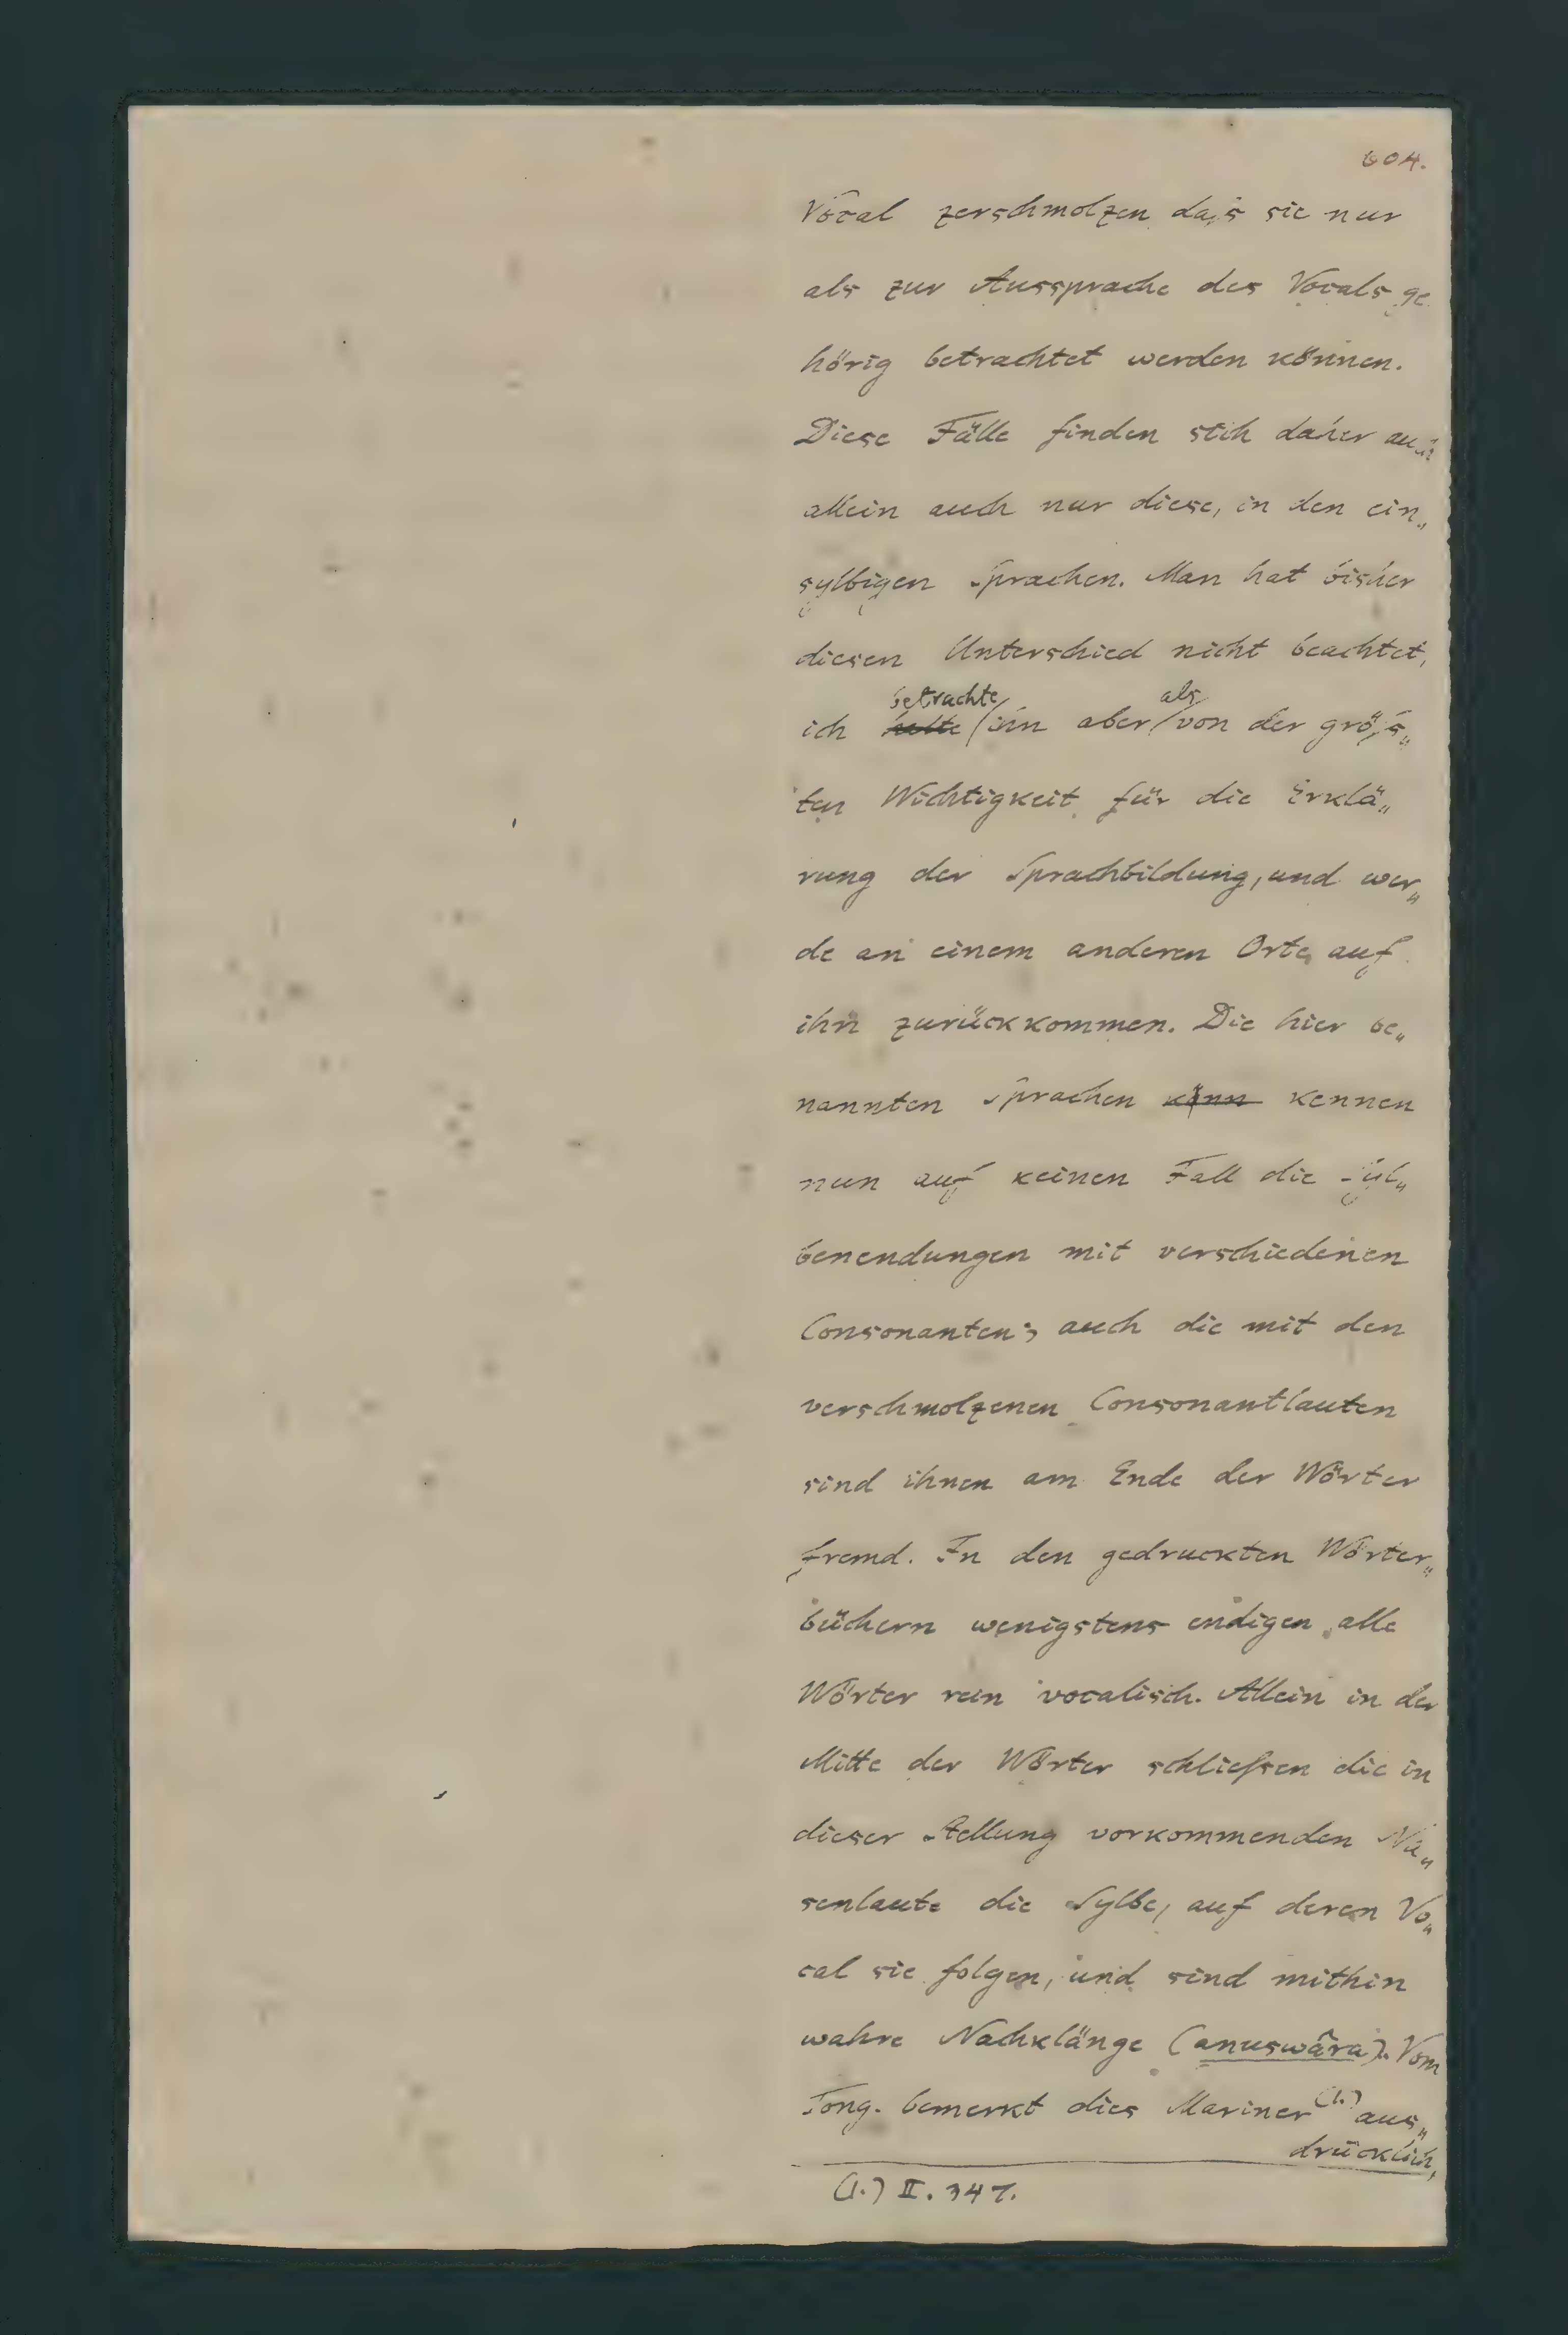 604.
Vocal zerschmolzen, daſs sie nur
als zur Aussprache des Vocals ge„
hörig betrachtet werden können.
Diese Fälle finden sich daher auch
allein auch nur diese, in den ein„
sylbigen Sprachen. Man hat bisher
diesen Unterschied nicht beachtet,
betrachte als
ich halte ihn aber von der gröſs„
ten Wichtigkeit für die Erklä„
rung der Sprachbildung, und wer„
de an einem anderen Orte auf
ihn zurückkommen. Die hier be„
nannten Sprachen könn kennen
nun auf keinen Fall die Syl„
benendungen mit verschiedenen
Consonanten; auch die mit den
verschmolzenen Consonantlauten
sind ihnen am Ende der Wörter
fremd. In den gedruckten Wörter„
büchern wenigstens endigen alle
Wörter rein vocalisch. Allein in der
Mitte der Wörter schlieſsen die in
dieser Stellung vorkommenden Na„
senlaute die Sylbe, auf deren Vo„
cal sie folgen, und sind mithin
wahre Nachklänge (anuswâra). Vom
Tong. bemerkt dies Mariner (1.) aus„
drücklich,
(1.) II. 347.